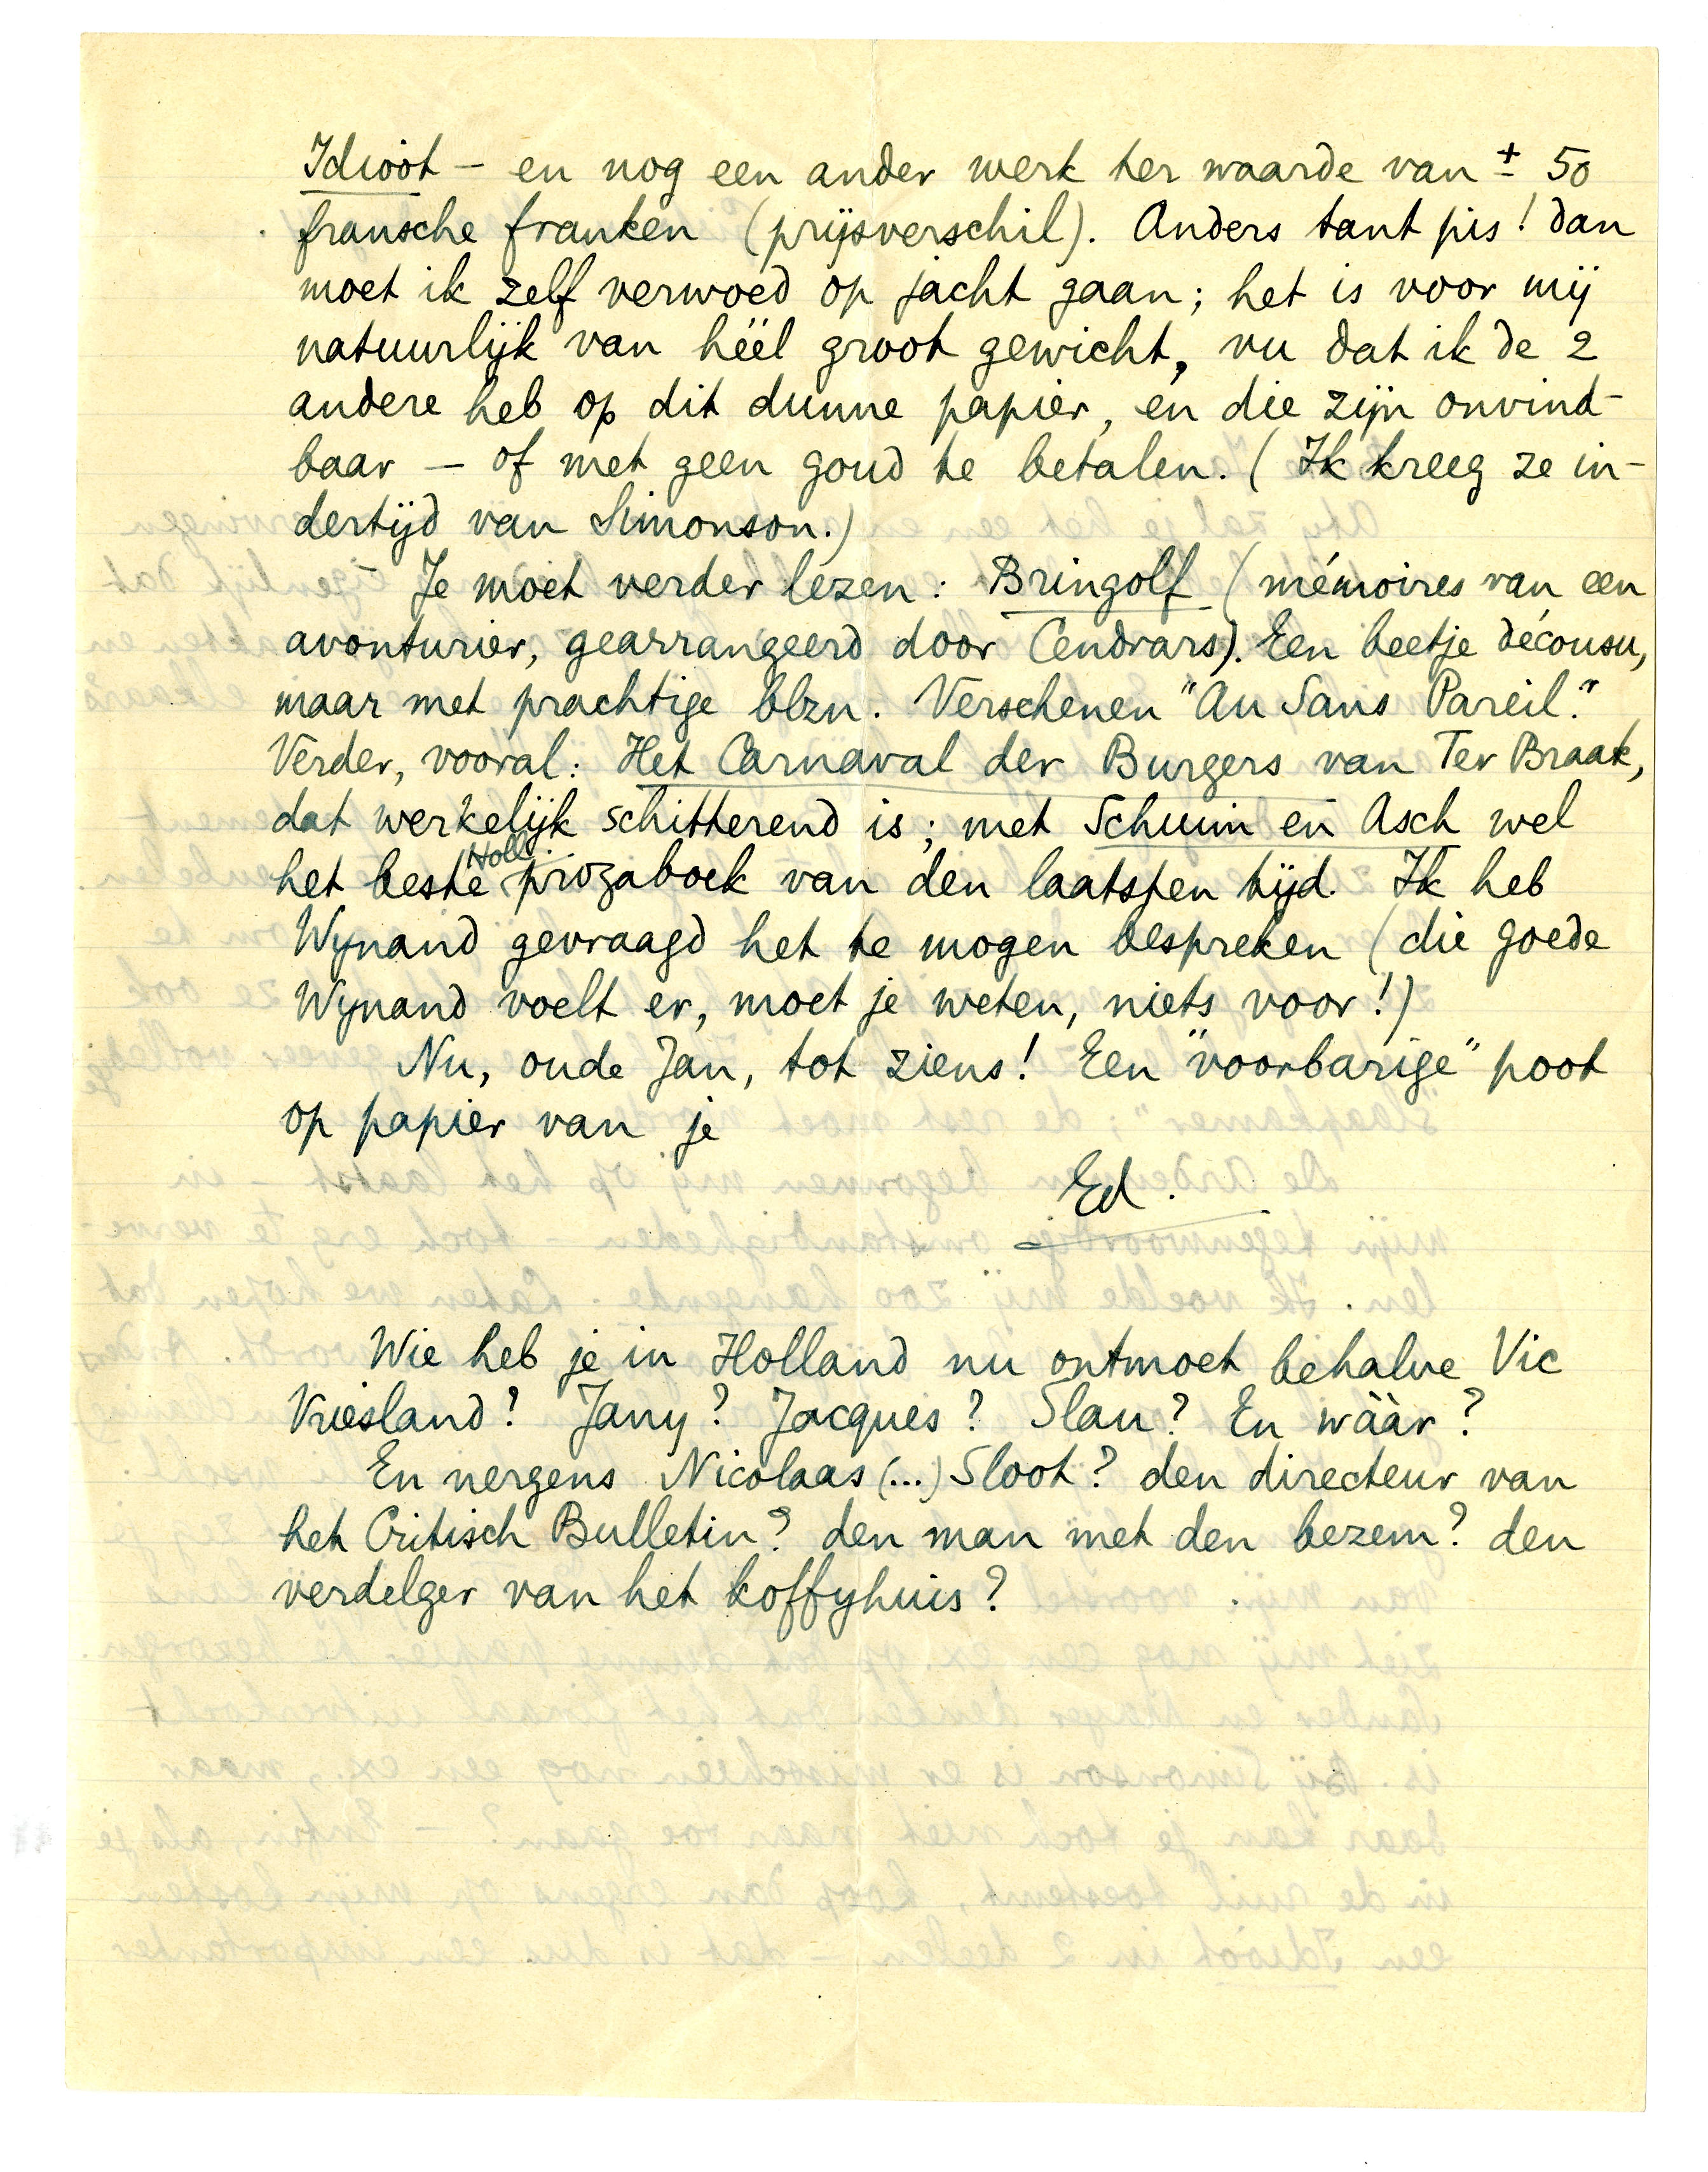 Idioot – en nog een ander werk ter waarde van ± 50
fransche franken (prijsverschil). Anders tant pis! dan
moet ik zelf verwoed op jacht gaan; het is voor mij
natuurlijk van héél groot gewicht, nu dat ik de 2
andere heb op dit dunne papier, en die zijn onvind-
baar – of met geen goud te betalen. (Ik kreeg ze in-
dertijd van Simonson.)
Je moet verder lezen: Bringolf (mémoires van een
avonturier, gearrangeerd door Cendrars). Een beetje décousu,
maar met prachtige blzn. Verschenen "Au Sans Pareil."
Verder, vooral: Het Carnaval der Burgers van Ter Braak,
dat werkelijk schitterend is; met Schuim en Asch wel
het beste Holl. prozaboek van den laatsten tijd. Ik heb
Wynand gevraagd het te mogen bespreken (die goede
Wynand voelt er, moet je weten, niets voor!)
Nu, oude Jan, tot ziens! Een "voorbarige" poot
op papier van je
Ed.
Wie heb je in Holland nu ontmoet behalve Vic
Vriesland? Jany? Jacques? Slau? En wáár?
En nergens Nicolaas (...) Sloot? den directeur van
het Critisch Bulletin? den man met den bezem? den
verdelger van het koffyhuis?